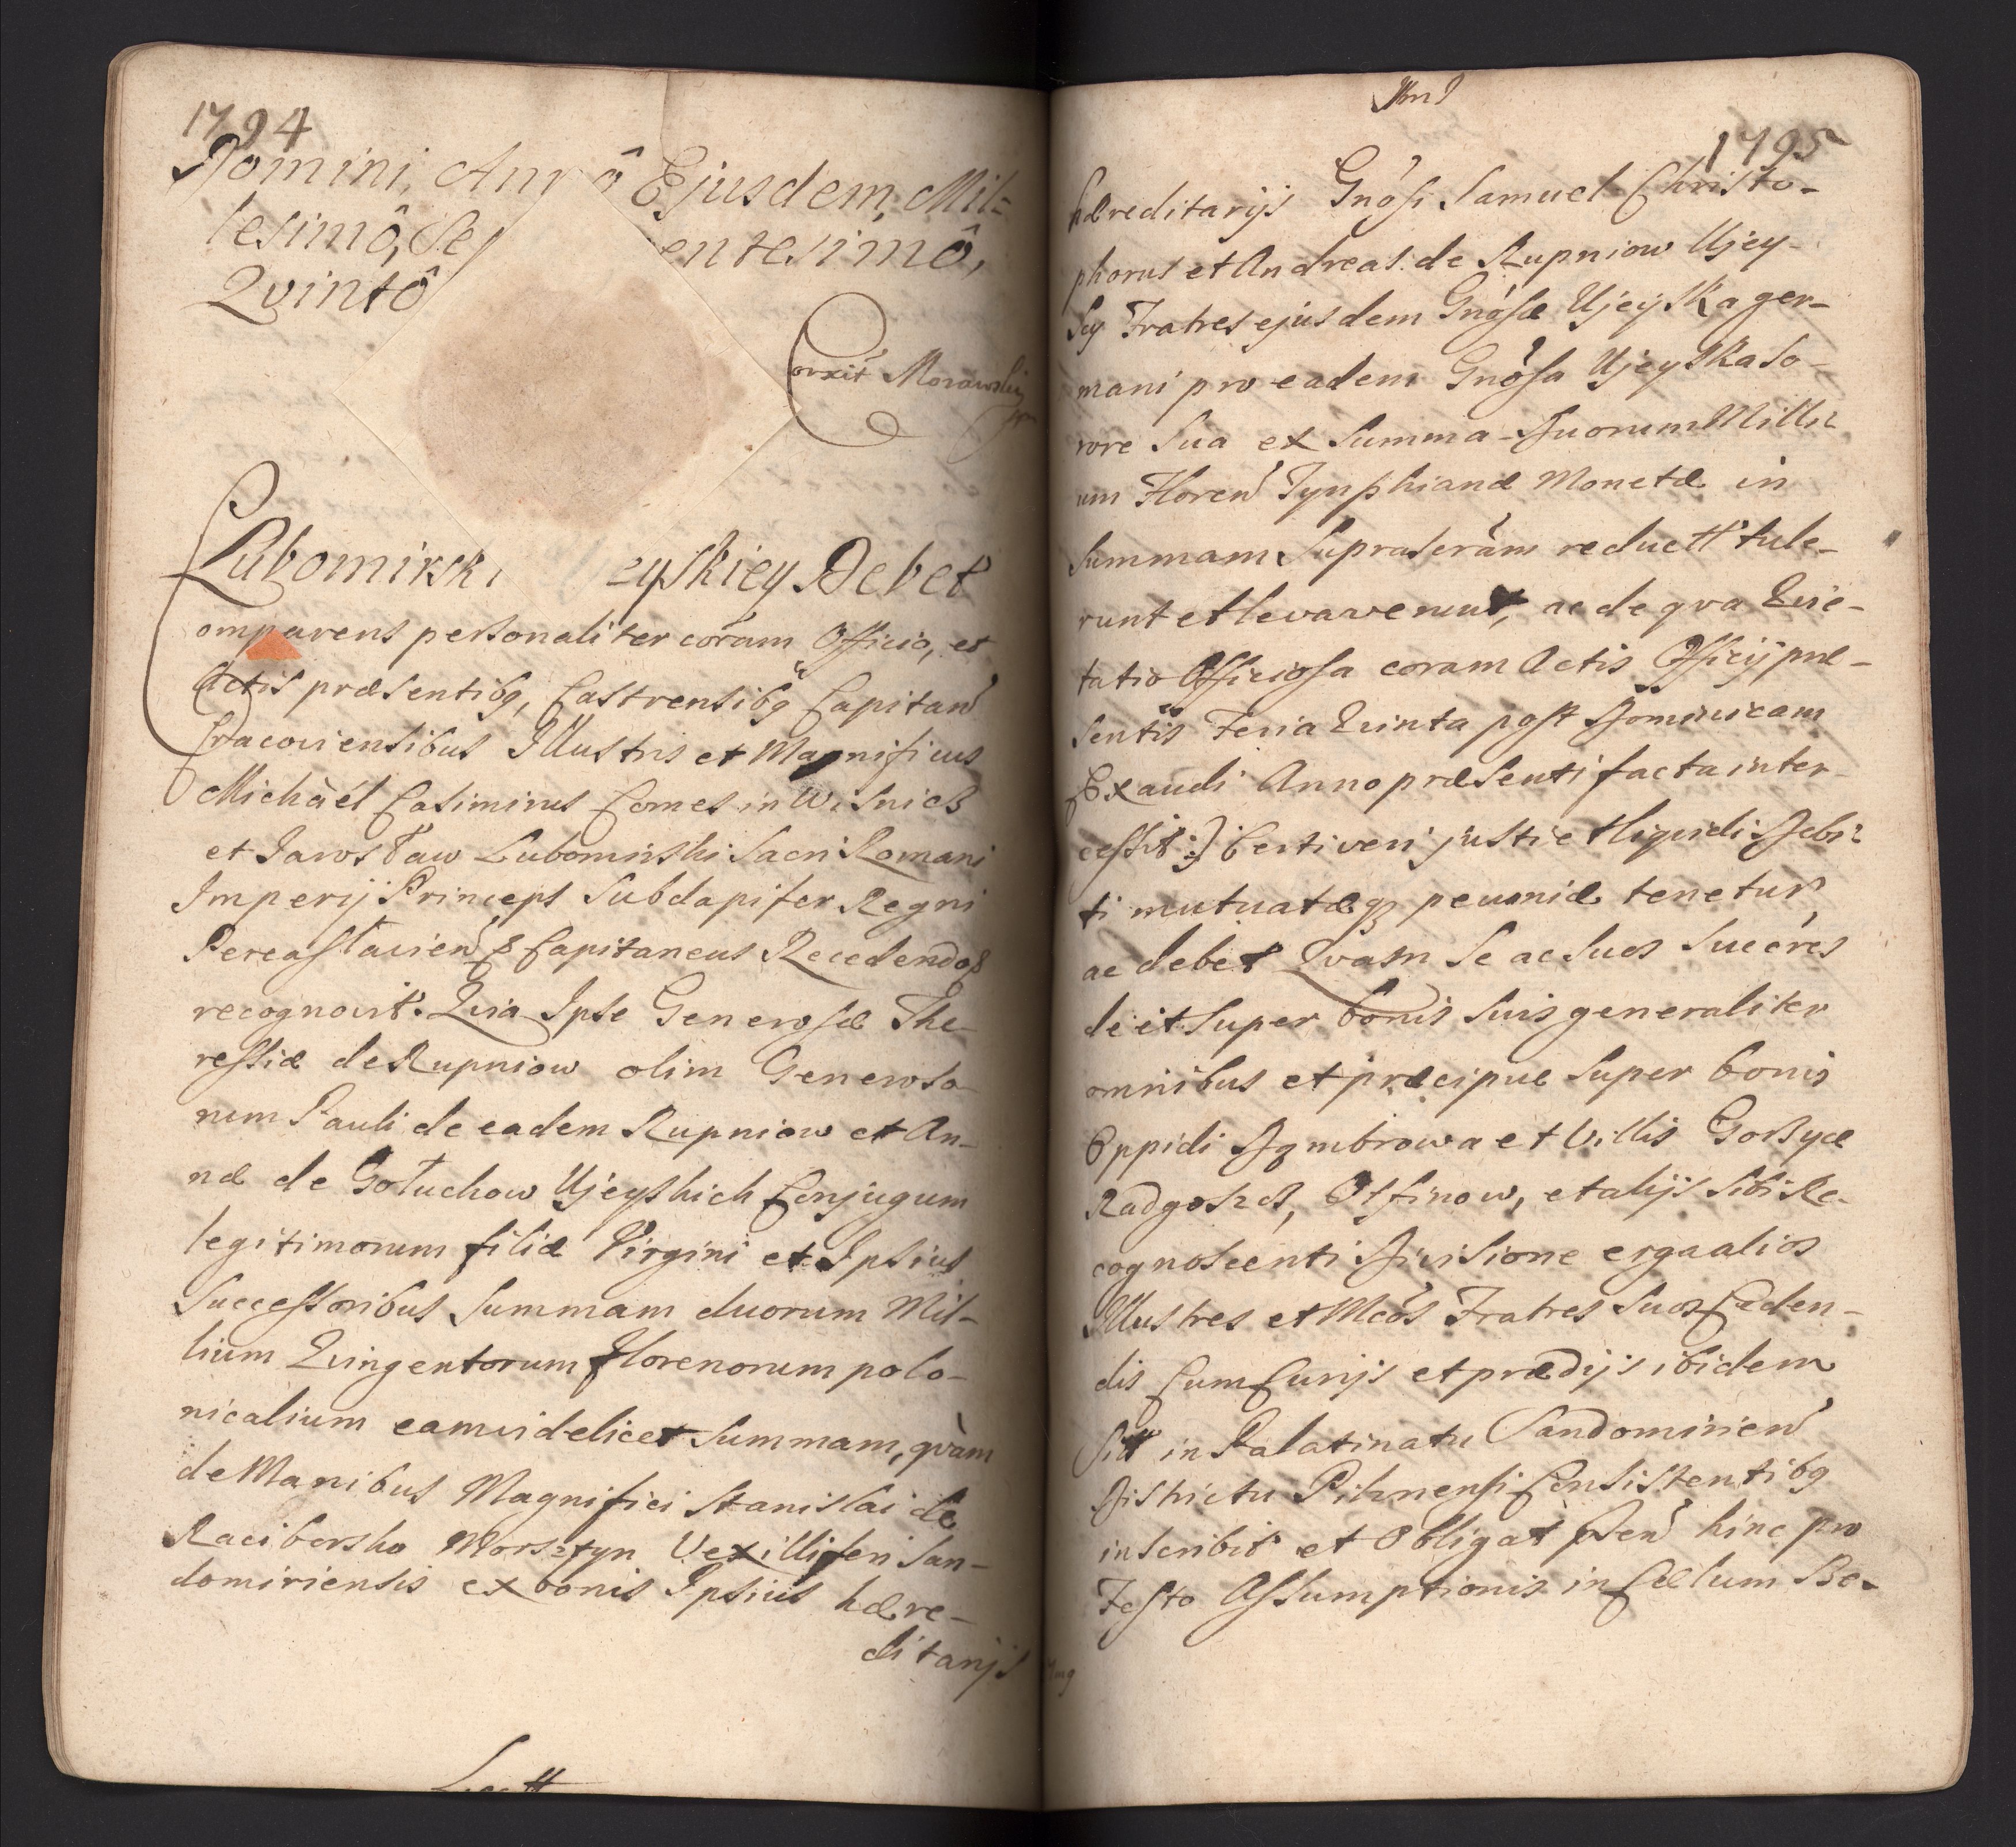 1794
Domini, Annô Ejusdem, Mil=
lesimô, Se entesimô,
Qvintô
Corrèxit Morawski
Lubomirski eyskiey Debet
Comparens personaliter coram Officio, et
Actis præsentibq, Castrensibq Capitan
Cracoviensibus Illustris et Magnificus
Michàél Casimirus Comes in Wisnicz
et Jarosław Lubomirski Sacri Romani
Imperij Princeps Subdapifer Regni
Pereasłavien & Capitaneus Recedendo &
recognovit. Qvia Ipse Generosæ The-
ressiæ de Rupniow olim Generoso-
rum Pauli de eadem Rupniow et An-
næ de Gołuchow Ujeyskich Conjugum
legitimorum filiæ Virgini et Ipsius
Successoribus Summam duorum Mil-
lium Qvingentorum Florenorum polo-
nicalium eam videlicet Summam, qvàm
de Manibus Magnifici Stanislai de
Racibersko Morsztyn Vexilliferi San-
domiriensis ex bonis Ipsius hære-
ditarijs
1795
hæreditarijs Gnösi Samuel Christo-
phorus et Andreas de Rupniow Ujey-
scy Fratres ejusdem Gnösæ Ujeyska ger-
mani pro eadem Gnösa Ujeyska So-
rore Sua ex Summa Duorum Milli-
um Floren Tynphianæ Monetæ in
Summam Suprascräm reductt tule-
runt et levaverunt, ac de qva Qvie-
tatio Officiosa coram Actis Officij præ-
sentis Feria Qvinta post Dominicam
Exaudi Anno præsenti facta inter-
cessit :) Certi veri justi et liqvidi Debi-
ti mutuatæq pecuniæ tenetur,
ac debet Qvam Se ac Suos Succeres
de et Super bonis Suis generaliter
omnibus et præcipue Super bonis
Oppidi Dąmbrowa et Villis Gorzyce
Radgoszcz, Otfinow, et alijs Sibi Re-
cognoscenti Divisione erga alios
Illustres et Mcos Fratres Suos Ceden-
dis Cum Curijs et prædijs ibidem
Sitt in Palatinatu Sandomirien
Districtu Pilznensi Consistentibq
inscribit et Obligat hinc pro
Festo Assumptionis in Cælum Be-